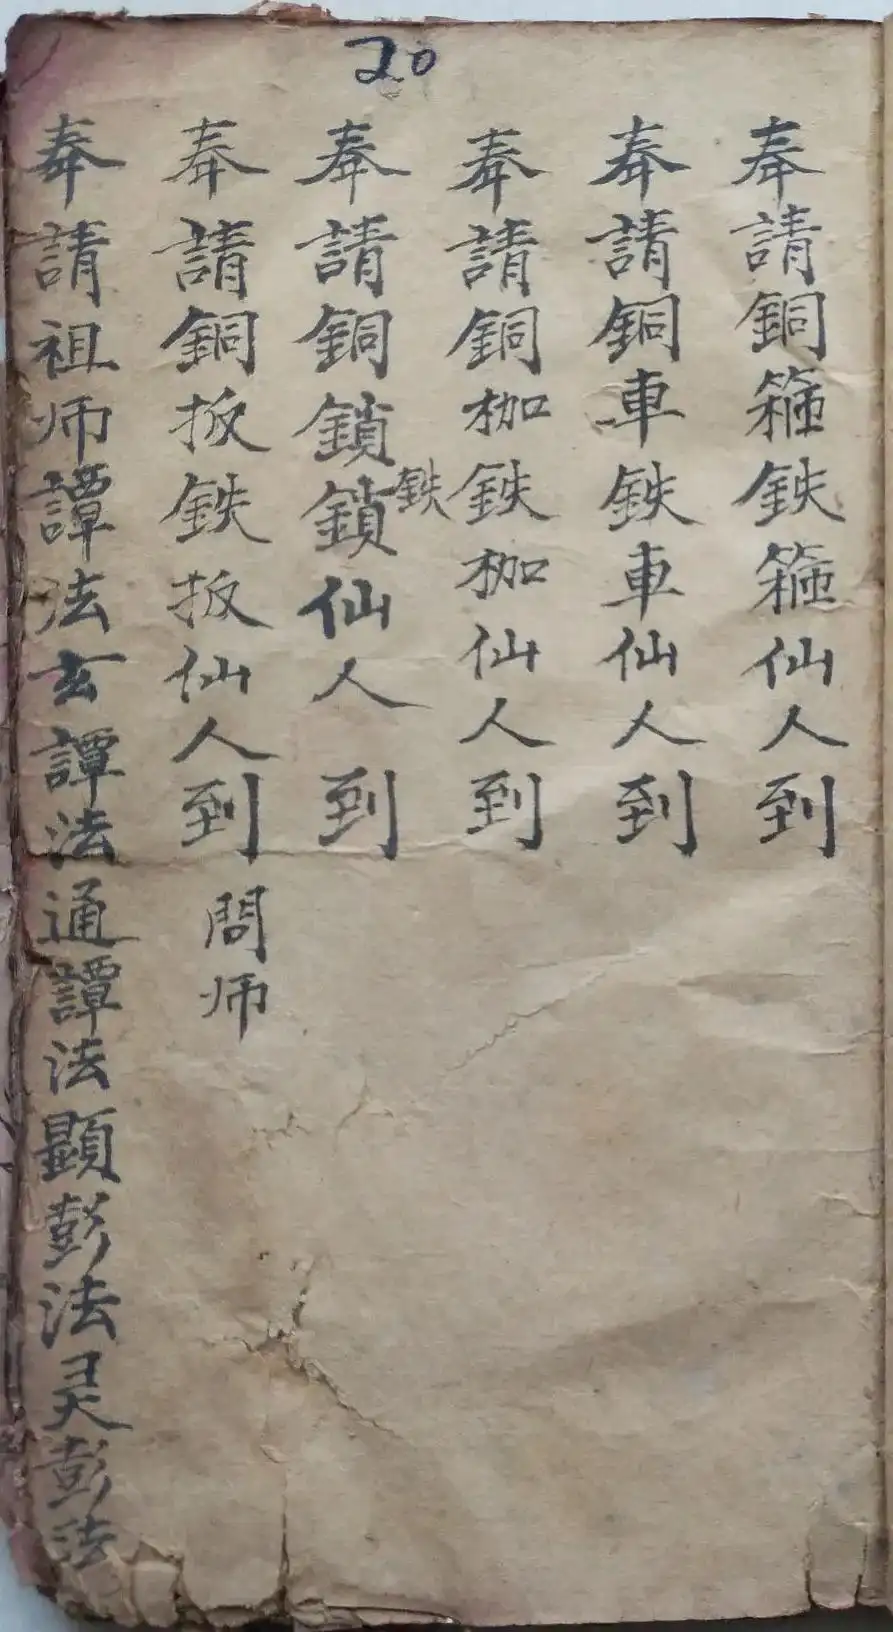 20
奉請銅箍鉄箍仙人到
奉請銅車鉄車仙人到
奉請銅枷鉄枷仙人到
奉請銅鎖鉄鎖仙人到
奉請銅扳鉄扳仙人到 問师
奉請祖师譚法玄譚法通譚法顕彭法灵彭法